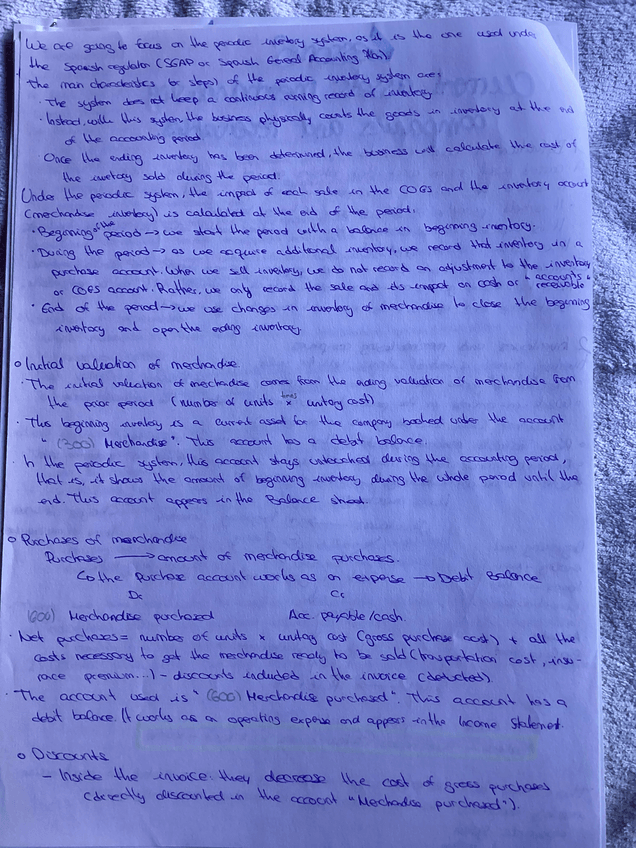 We are going to focus on the periodic inventory system, as it is the one used under
the Spanish regulator (SGAP or Spanish General Accounting Plan)
The main characteristics (or steps) of the periodic inventory system are:
The system does not keep a continuous running record of inventory.
· Instead, with this system, the business physically counts the goods in inventory at the end
of the accounting period
Once the ending inventory has been determined, the business will calculate this cost of
the inventory sold during the period.
Under the periodic system, the impact of each sale in the COGS and the inventory account
(merchandise inventory) is calculated at the end of the period:
· Beginning of the period → we start the period with a balance in beginning inventory.
· During the period → as we acquire additional inventory, we record that inventory in a
purchase account. When we sell inventory, we do not record an adjustment to the inventory
or COGS account. Rather, we only record the sale and its impact on cash or "accounts receivable"
· End of the period → we use changes in inventory of merchandise to close the beginning
inventory and open the ending inventory.
o Initial valuation of merchandise.
· The initial valuation of merchandise comes from the ending valuation of merchandise from
the prior period (number of units times x unitary cost)
· This beginning inventory is a current asset for the company booked under the account
"(300) Merchandise". This account has a debit balance.
· In the periodic system, this account stays untouched during the accounting period,
that is, it shows the amount of beginning inventory during the whole period until the
end. This account appears in the Balance sheet.
o Purchases of merchandise
Purchases → amount of merchandise purchases.
↳ the purchase account works as an expense → Debit Balance
Dr Cr
(600) Merchandise purchased Acc. payable/cash.
· Net purchases = number of units x unitary cost (gross purchase cost) + all the
costs necessary to get the merchandise ready to be sold (transportation cost, insu-
rance premium...) - discounts included in the invoice (deducted).
· The account used is "(600) Merchandise purchased". This account has a
debit balance. It works as an operating expense and appears in the Income Statement.
o Discounts
- Inside the invoice: they decrease the cost of gross purchases
(directly discounted in the account "Mechandise purchased").